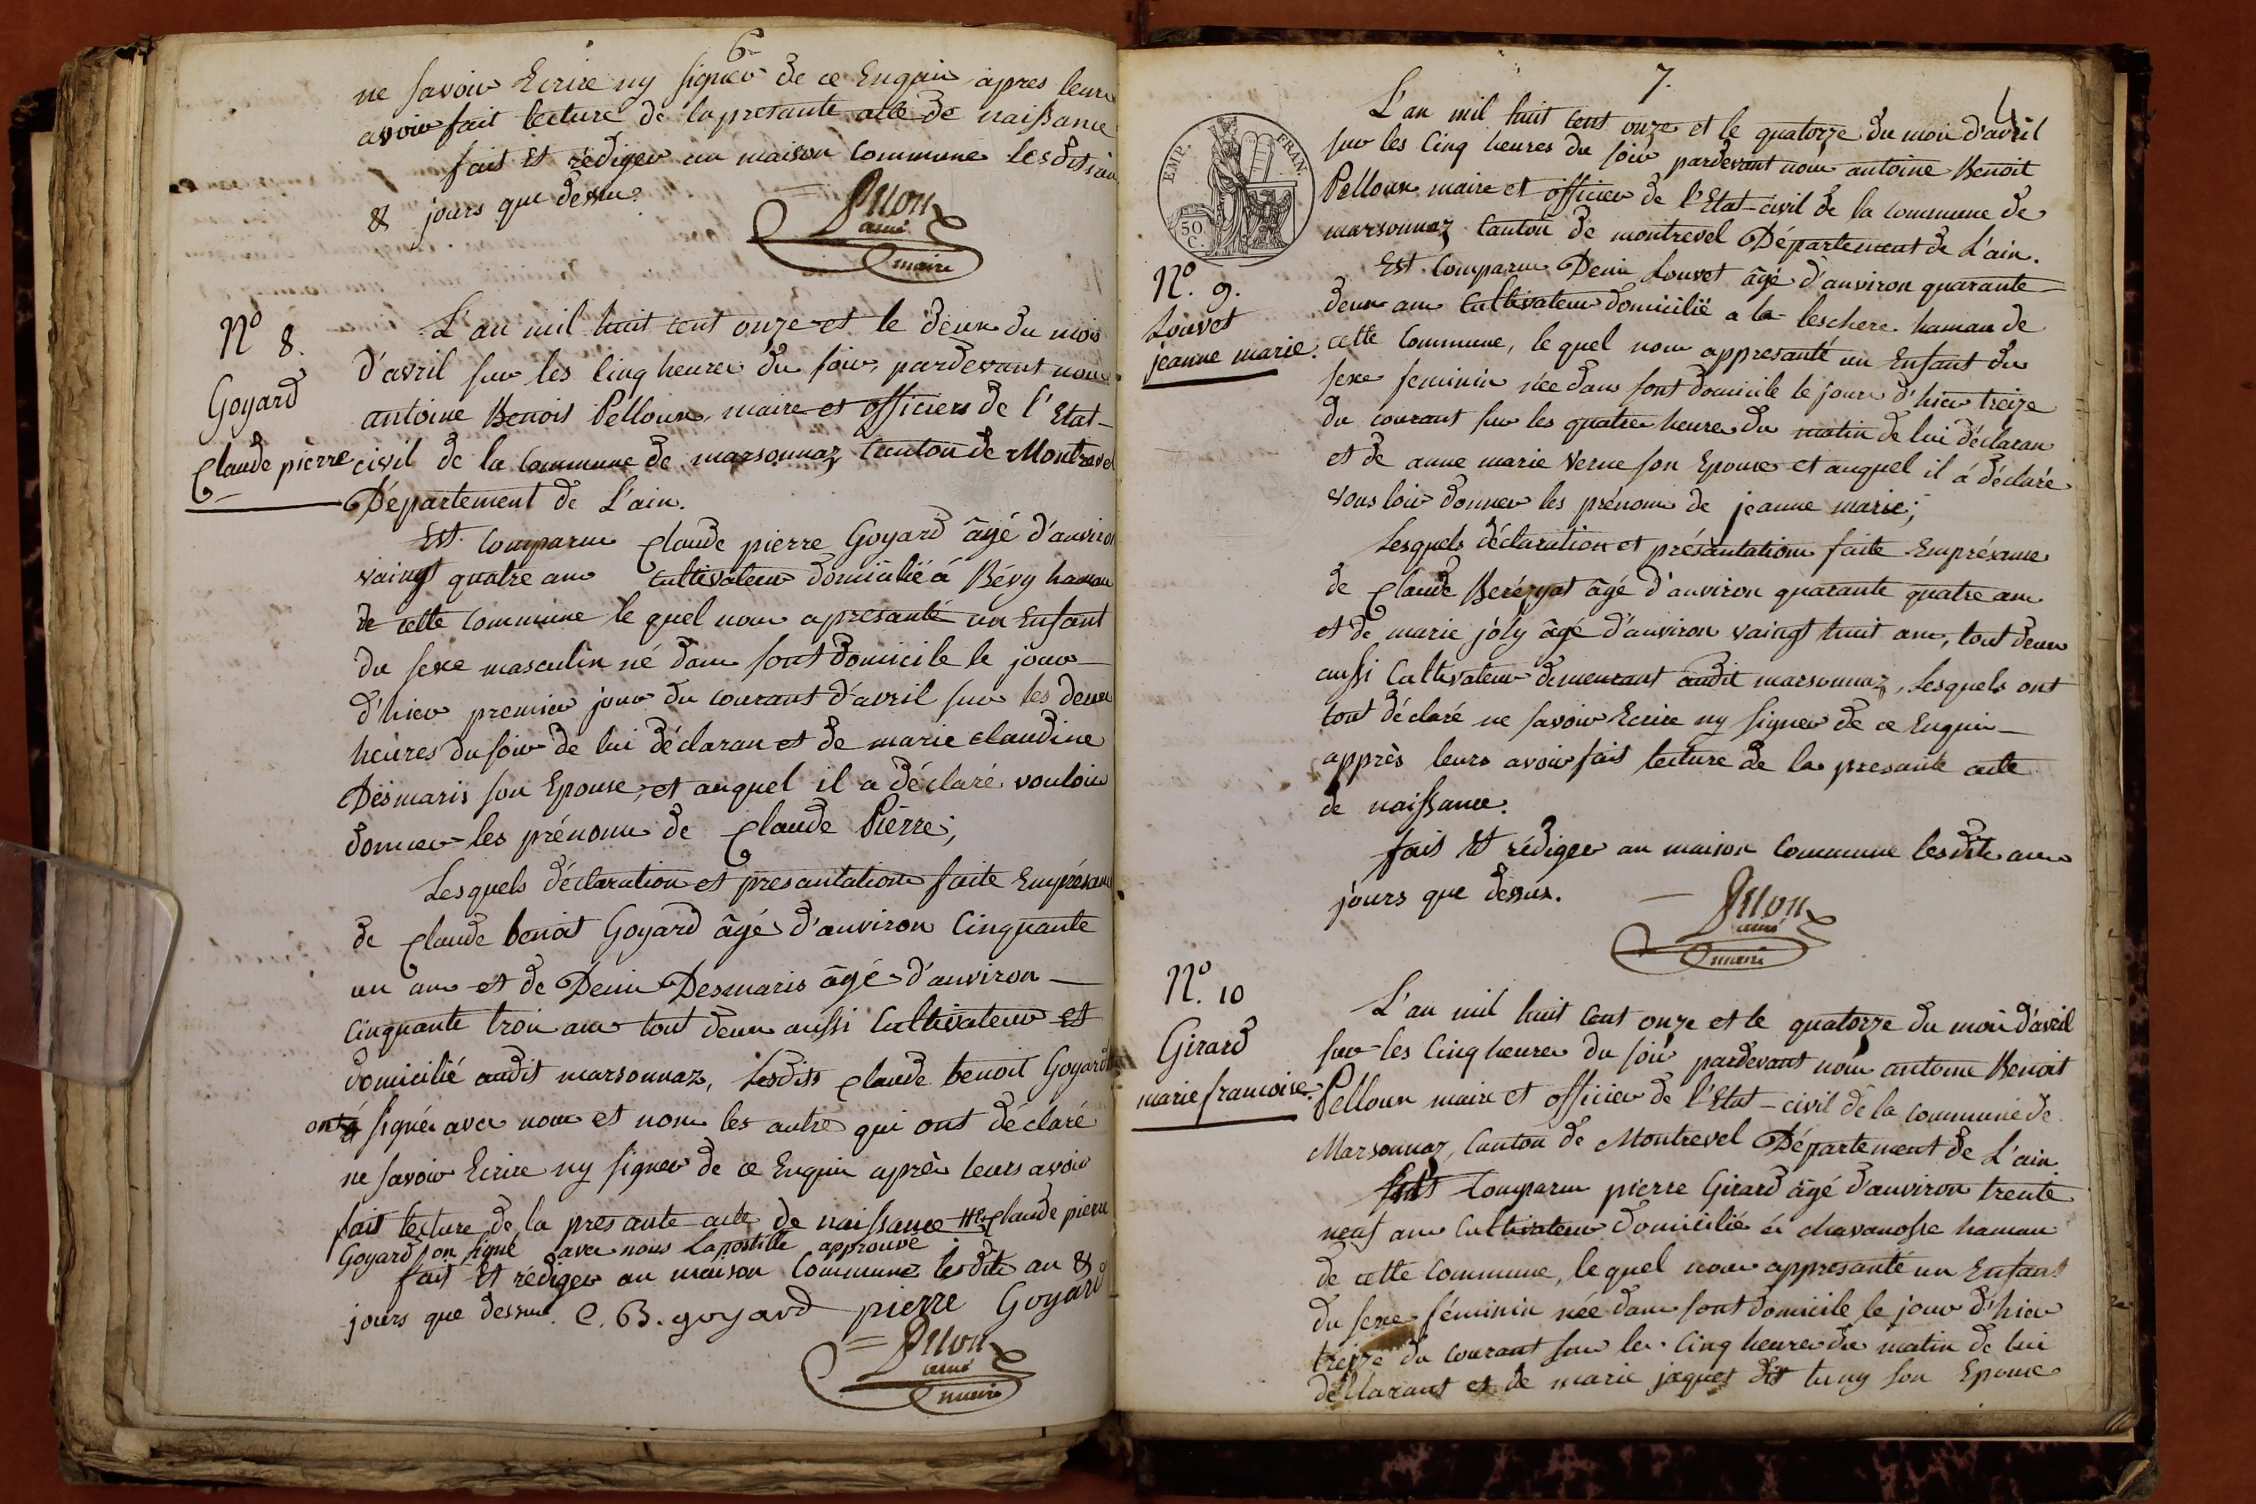 6
ne savoir Ecrire ny signer de ce Enquin apres leurs
avoir fait lecture de la presante acte de naissance
fait et rédiger au maison commune lesdits an
& jours que dessus.
ainé
maire
N° 8.
Goyard
Claude pierre
L'an mil huit cent onze et le deux du mois
d'avril sur les cinq heures du soir, pardevant nous
antoine Benois Pelloux, maire et officiers de l'Etat-
civil de la commune de marsonnaz Canton de Montrevel
Département de L'ain.
Est comparu Claude pierre Goyard âgé d'anviron
vaingt quatre ans cultivateur domicilié á Bévy hamau
de cette commune le quel nous apresanté un Enfant
du sexe masculin né dans sont domicile le jour
d'hier premier jour du courant d'avril sur les deux
heures du soir de lui déclaran et de marie claudine
Desmaris son Epouse, et auquel il a déclaré vouloir
donner les prénoms de Claude Pierre;
Lesquels déclaration et presantations faite Emprésance
de Claude benoit Goyard âgé d'anviron Cinquante
un ans et de Denis Desmaris âgé d'anviron
Cinquante trois ans tout deux aussi Cultivateur et
domicilié audit marsonnaz, Lesdits Claude benoit Goyard
ont signés avec nous et nom les autre qui ont déclaré
ne savoir Ecrire ny signer de ce Enquin après leurs avoir
fait lecture de la presante acte de naissance # Claude pierre
Goyard on signé avec nous Lapostille approuvé
fait et rédiger au maison Commune lesdits an &
jours que dessus. C. B. goyard pierre Goyard
ainé
maire
7.
EMP. FRAN.
50. C.
L'an mil huit cent onze et le quatorze du mois d'avril
sur les Cinq heures du soir pardevant nous antoine Benoit
Pelloux maire et officier de l'Etat-civil de la commune de
marsonnaz Canton de montrevel Département de L'ain.
N°. 9.
Louvet
jeanne marie.
Est comparu Denis Louvet âgé d'anviron quarante
deux ans Cultivateur domicilié a la leschere hamau de
cette Commune, le quel nous appresanté un Enfant du
sexe feminin née dans sont domicile le jours d'hier treize
du courant sur les quatre heures du matin de lui déclaran
et de anne marie Verne son Epouse et auquel il á déclaré
vousloir donner les prénoms de jeanne marie;
Lesquels déclaration et présantations faite Emprésance
de Claude Berézyat âgé d'anviron quarante quatre ans
et de marie joly âgé d'anviron vaingt huit ans, tout deux
aussi Cultivateur demeurant audit marsonnaz, Lesquels ont
tout déclaré ne savoir Ecrire ny signer de ce Enquin
apprès leurs avoir fait lecture de la presante acte
de naissance.
fait et rédiger au maison Commune lesdits ans
jours que dessus.
ainé
maire
N°. 10
Girard
marie francoise.
L'an mil huit Cent onze et le quatorze du mois d'avril
sur les Cinq heures du soir pardevant nous antoine Benoit
Pelloux maire et officier de l'Etat-civil de la commune de
Marsonnaz, Canton de Montrevel Département de L'ain
Est Comparu pierre Girard âgé d'anviron trente
neuf ans Cultivateur domicilié á chavanosse hamau
de cette Commune, le quel nous appresanté un Enfant
du sexe féminin née dans sont domicile le jour d'hier
treize du courant sur les Cinq heures du matin de lui
déclarant et de marie jaquet dit tuny son Epouse